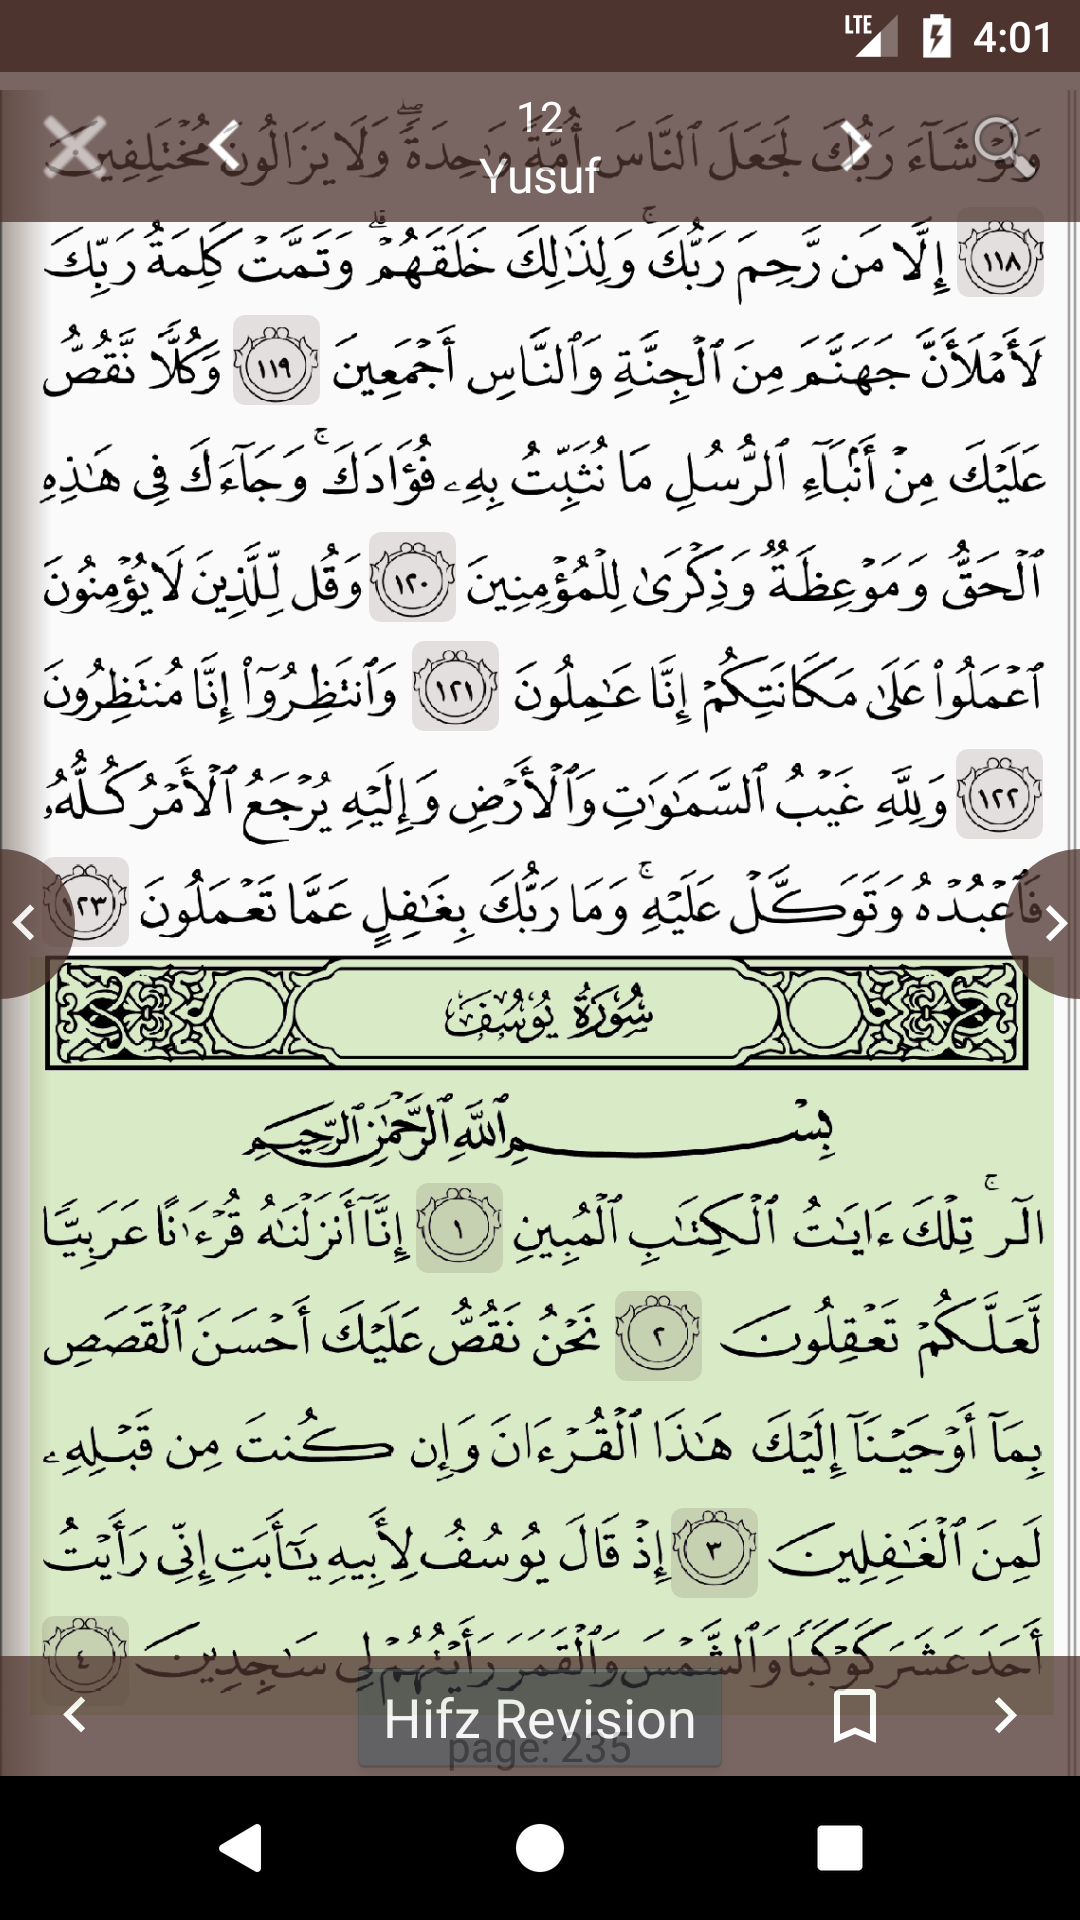 LTE 4:01
12
Yusuf
وَلَوْ شَآءَ رَبُّكَ لَجَعَلَ ٱلنَّاسَ أُمَّةً وَٰحِدَةً ۖ وَلَا يَزَالُونَ مُخْتَلِفِينَ
١١٨ إِلَّا مَن رَّحِمَ رَبُّكَ ۚ وَلِذَٰلِكَ خَلَقَهُمْ ۗ وَتَمَّتْ كَلِمَةُ رَبِّكَ
لَأَمْلَأَنَّ جَهَنَّمَ مِنَ ٱلْجِنَّةِ وَٱلنَّاسِ أَجْمَعِينَ ١١٩ وَكُلًّا نَّقُصُّ
عَلَيْكَ مِنْ أَنۢبَآءِ ٱلرُّسُلِ مَا نُثَبِّتُ بِهِۦ فُؤَادَكَ ۚ وَجَآءَكَ فِى هَٰذِهِ
ٱلْحَقُّ وَمَوْعِظَةٌ وَذِكْرَىٰ لِلْمُؤْمِنِينَ ١٢٠ وَقُل لِّلَّذِينَ لَا يُؤْمِنُونَ
ٱعْمَلُوا۟ عَلَىٰ مَكَانَتِكُمْ إِنَّا عَٰمِلُونَ ١٢١ وَٱنتَظِرُوٓا۟ إِنَّا مُنتَظِرُونَ
١٢٢ وَلِلَّهِ غَيْبُ ٱلسَّمَٰوَٰتِ وَٱلْأَرْضِ وَإِلَيْهِ يُرْجَعُ ٱلْأَمْرُ كُلُّهُۥ
فَٱعْبُدْهُ وَتَوَكَّلْ عَلَيْهِ ۚ وَمَا رَبُّكَ بِغَٰفِلٍ عَمَّا تَعْمَلُونَ ١٢٣
سُورَةُ يُوسُفَ
بِسْمِ ٱللَّهِ ٱلرَّحْمَٰنِ ٱلرَّحِيمِ
الٓر ۚ تِلْكَ ءَايَٰتُ ٱلْكِتَٰبِ ٱلْمُبِينِ ١ إِنَّآ أَنزَلْنَٰهُ قُرْءَٰنًا عَرَبِيًّا
لَّعَلَّكُمْ تَعْقِلُونَ ٢ نَحْنُ نَقُصُّ عَلَيْكَ أَحْسَنَ ٱلْقَصَصِ
بِمَآ أَوْحَيْنَآ إِلَيْكَ هَٰذَا ٱلْقُرْءَانَ وَإِن كُنتَ مِن قَبْلِهِۦ
لَمِنَ ٱلْغَٰفِلِينَ ٣ إِذْ قَالَ يُوسُفُ لِأَبِيهِ يَٰٓأَبَتِ إِنِّى رَأَيْتُ
أَحَدَ عَشَرَ كَوْكَبًا وَٱلشَّمْسَ وَٱلْقَمَرَ رَأَيْتُهُمْ لِى سَٰجِدِينَ ٤
Hifz Revision
page: 235